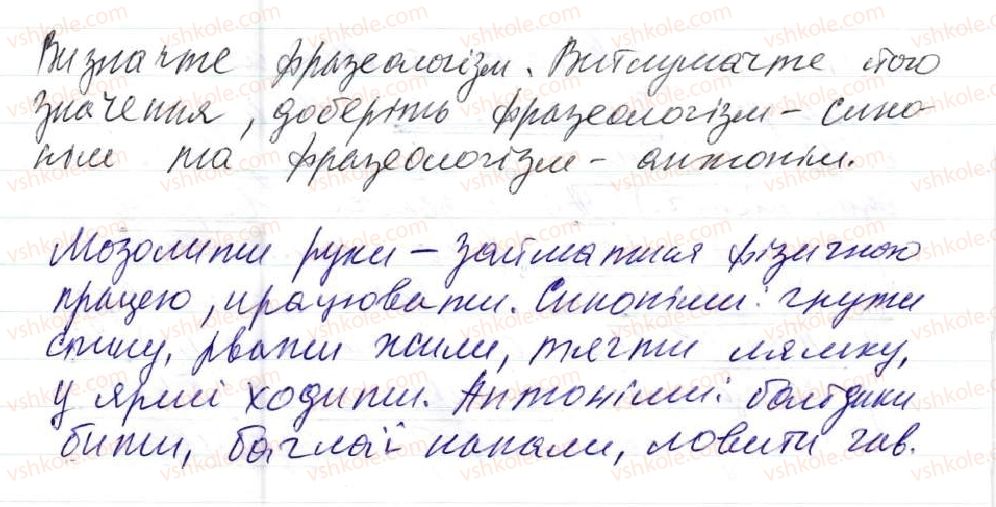 Визначте фразеологізм. Витлумачте його
значення, доберіть фразеологізм - сино-
нім та фразеологізм - антонім.
Мозолити руки – займатися фізичною
працею, працювати. Синоніми: гнути
спину, рвати жили, тягти лямку,
у ярмі ходити. Антоніми: байдики
бити, баглаї напали, ловити гав.